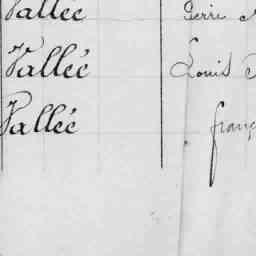 Vallée Pierre
Vallée Louis
Vallée franç